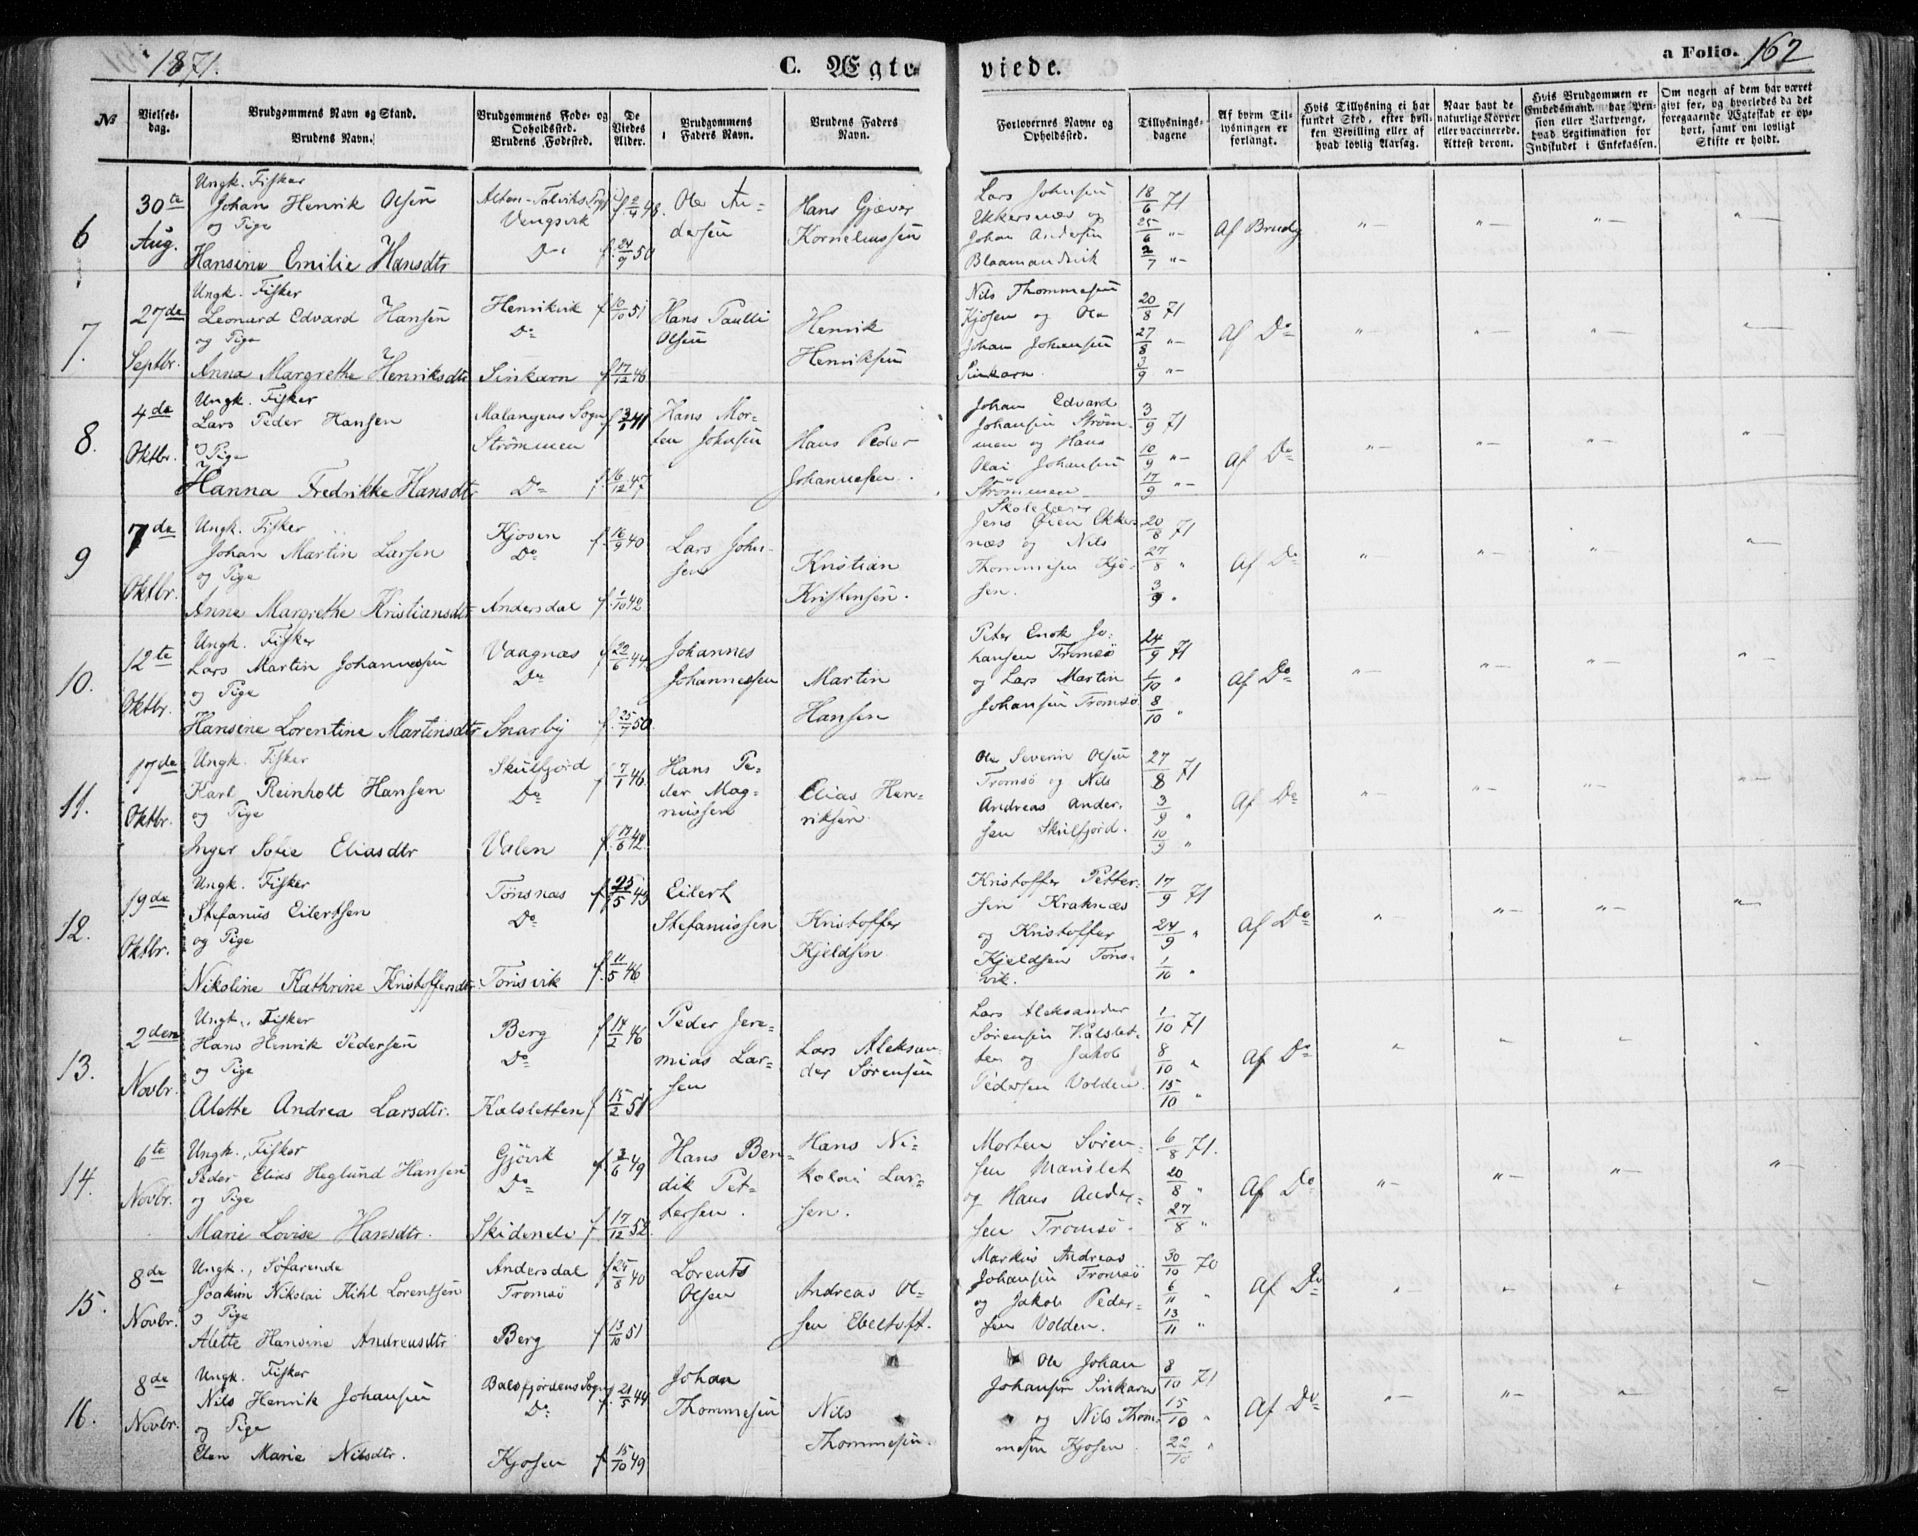 1871.
C. Ægte-
viede.
a Folio. 162
No
Vielses-
dag.
Brudgommens Navn og Stand.
Brudens Navn.
Brudgommens Føde- og
Opholdssted.
Brudens Fødested.
De
Viedes
Alder.
Brudgommens
Faders Navn.
Brudens Faders
Navn.
Forlovernes Navne og
Opholdssted.
Tillysnings-
dagene
Af hvem Til-
lysningen er
forlangt.
Hvis Tillysning ei har
fundet Sted, efter hvil-
ken Bevilling eller af
hvad lovlig Aarsag.
Naar havt de
naturlige Kopper
eller vaccinerede.
Attest derom.
Hvis Brudgommen er
Embedsmand, har Pen-
sion eller Vartpenge,
hvad Legitimation for
Indskudet i Enkekassen.
Om nogen af dem har været
givt før, og hvorledes da det
foregaaende Ægteskab er op-
hørt, samt om lovligt
Skifte er holdt.
6
30te
Aug.
Ungk. Fisker
Johan Henrik Olsen
og Pige
Hansine Emilie Hansdtr
Alten-Talviks
Vengsvik
Do
f. 2/4 48.
f. 24/9 50
Ole An-
dersen
Hans Gjæver
Korneliussen
Lars Johnsen
Ekkersnæs og
Johan Andersen
Blaamandsvik
18/6 71
25/6 "-
2/7 "-
Af Brudg
"-
"-
"-
"-
7.
27de
Septbr.
Ungk. Fisker
Leonard Edvard Hansen
og Pige
Anna Margrethe Henriksdtr
Henrikvik
Do
Sinkarn
f. 10/10 51
f. 17/12 46
Hans Paulli
Olsen
Henrik
Henriksen
Nils Thommesen
Kjosen og Ole
Johan Johansen
Sinkarn.
20/8 71
27/8 "-
3/9 "-
Af Do
"-
"-
"-
"-
8.
4de
Oktbr.
Ungk. Fisker
Lars Peder Hansen
og Pige
Hanna Fredrikke Hansdtr
Malangens Sogn
Strømmen
Do
f. 3/1 41
f. 16/12 47
Hans Mor-
ten Johnsen
Hans Peder
Johannesen.
Johan Edvard
Johansen Strøm-
men og Hans
Olai Johansen
Strømmen
3/9 71
10/9 "-
17/9 "-
Af Do
"-
"-
"-
"
9
7de
Oktbr.
Ungk. Fisker
Johan Martin Larsen
og Pige
Anne Margrethe Kristiansdtr
Kjosen
Do
Andersdal
f. 16/9 40
f. 1/10 42
Lars John-
sen
Kristian
Kristensen.
Skolelærer
Jens Øien Ekkers-
næs og Nils
Thommesen Kjo-
sen.
20/8 71
27/8 "
3/9 "
Af Do
"
"-
"-
"-
10.
12te
Oktbr.
Ungk. Fisker
Lars Martin Johannesen
og Pige
Hansine Lorentine Martinsdtr
Vaagnæs
Do
Snarby
f. 22/6 44
f. 25/7 50.
Johannes
Johannessen
Martin
Hansen
Peter Enok Jo-
hansen Tromsø
og Lars Martin
Johansen Tromsø
24/9 71
1/10 "
8/10 "
Af Do
"-
"-
"-
"-
11.
17de
Oktbr.
Ungk. Fisker
Karl Reinholt Hansen
og Pige
Inger Sofie Eliasdtr
Skulfjord
Do
Valen
f. 7/1 46
f. 17/6 42.
Hans Pe-
der Mag-
nussen
Elias Hen-
riksen.
Ole Severin Olsen
Tromsø og Nils
Andreas Ander-
sen Skulfjord.
27/8 71
3/9 "
10/9 "
Af Do
"-
"-
"-
"-
12.
19de
Oktbr.
Ungk. Fisker
Stefanus Eilertsen
og Pige
Nikoline Kathrine Kristoffersdtr
Tønsnæs
Do
Tønsvik
f. 25/5 43
f. 11/5 46
Eilert
Stefanussen
Kristoffer
Kjeldsen
Kristoffer Petter-
sen Kraknæs
og Kristoffer
Kjeldsen Tøns-
vik.
17/9 71
24/9 "
1/10 "
Af Do
"-
"-
"-
"-
13.
2den
Novbr.
Ungk., Fisker
Hans Henrik Pedersen
og Pige
Alette Andrea Larsdtr.
Berg
Do
Kalsletten
f. 14/2 46
f. 15/2 51
Peder Jere-
mias Lar-
sen
Lars Aleksan-
der Sørensen
Lars Aleksander
Sørensen Kalslet-
ten og Jakob
Pedersen Volden.
1/10 71
8/10 "
15/10 "
Af Do
"
"
"
"
14.
6te
Novbr.
Ungk., Fisker
Peder Elias Heglund Hansen
og Pige
Marie Lovise Hansdtr.
Gjøvik
Do
Skidenelv
f. 3/6 49
f. 17/12 52.
Hans Ben-
dik Pet-
tersen.
Hans Ni-
kolai Lar-
sen.
Morten Søren-
sen Manslet
og Hans Ander-
sen Tromsø.
6/8 71.
20/8 "
27/8 "
Af Do
"-
"-
"-
"-
15.
8de
Novbr.
Ungk., Søfarende
Joakim Nikolai Kihl Lorentsen
og Pige
Alette Hansine Andreasdtr
Andersdal
Tromsø
Berg
f. 25/8 40
f. 13/10 51
Lorents
Olsen
Andreas Ol-
sen Ebeltoft.
Markus Andreas
Johansen Tromsø
og Jakob Peder-
sen Volden.
30/10 70
6/11 "
13/11 "
Af Do
"-
"-
"-
"
16.
8de
Novbr.
Ungk. Fisker
Nils Henrik Johansen
og Pige
Elen Marie Nilsdtr.
Balsfjordens Sogn
Do
Kjosen
f. 21/5 44
f. 15/10 49
Johan
Thommesen
Nils
Thommesen.
Ole Johan
Johansen Sinkarn
og Nils Thom-
mesen Kjosen.
8/10 71
15/10 "
22/10 "
Af Do
"-
"-
"-
"-